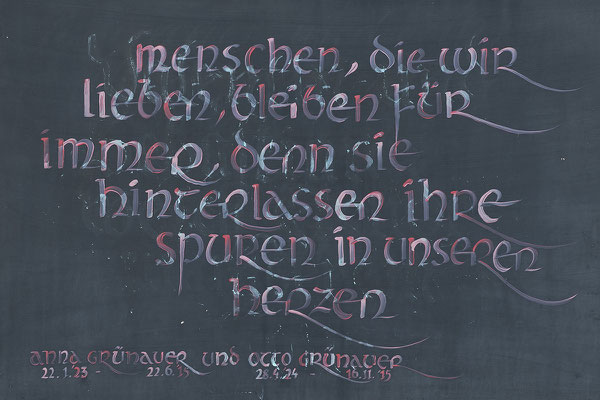 menschen, die wir
lieben, bleiben für
immer, denn sie
hinterlassen ihre
spuren in unseren
herzen
anna grünauer und otto grünauer
22.1.23 - 22.6.15 28.4.24 - 16.11.15